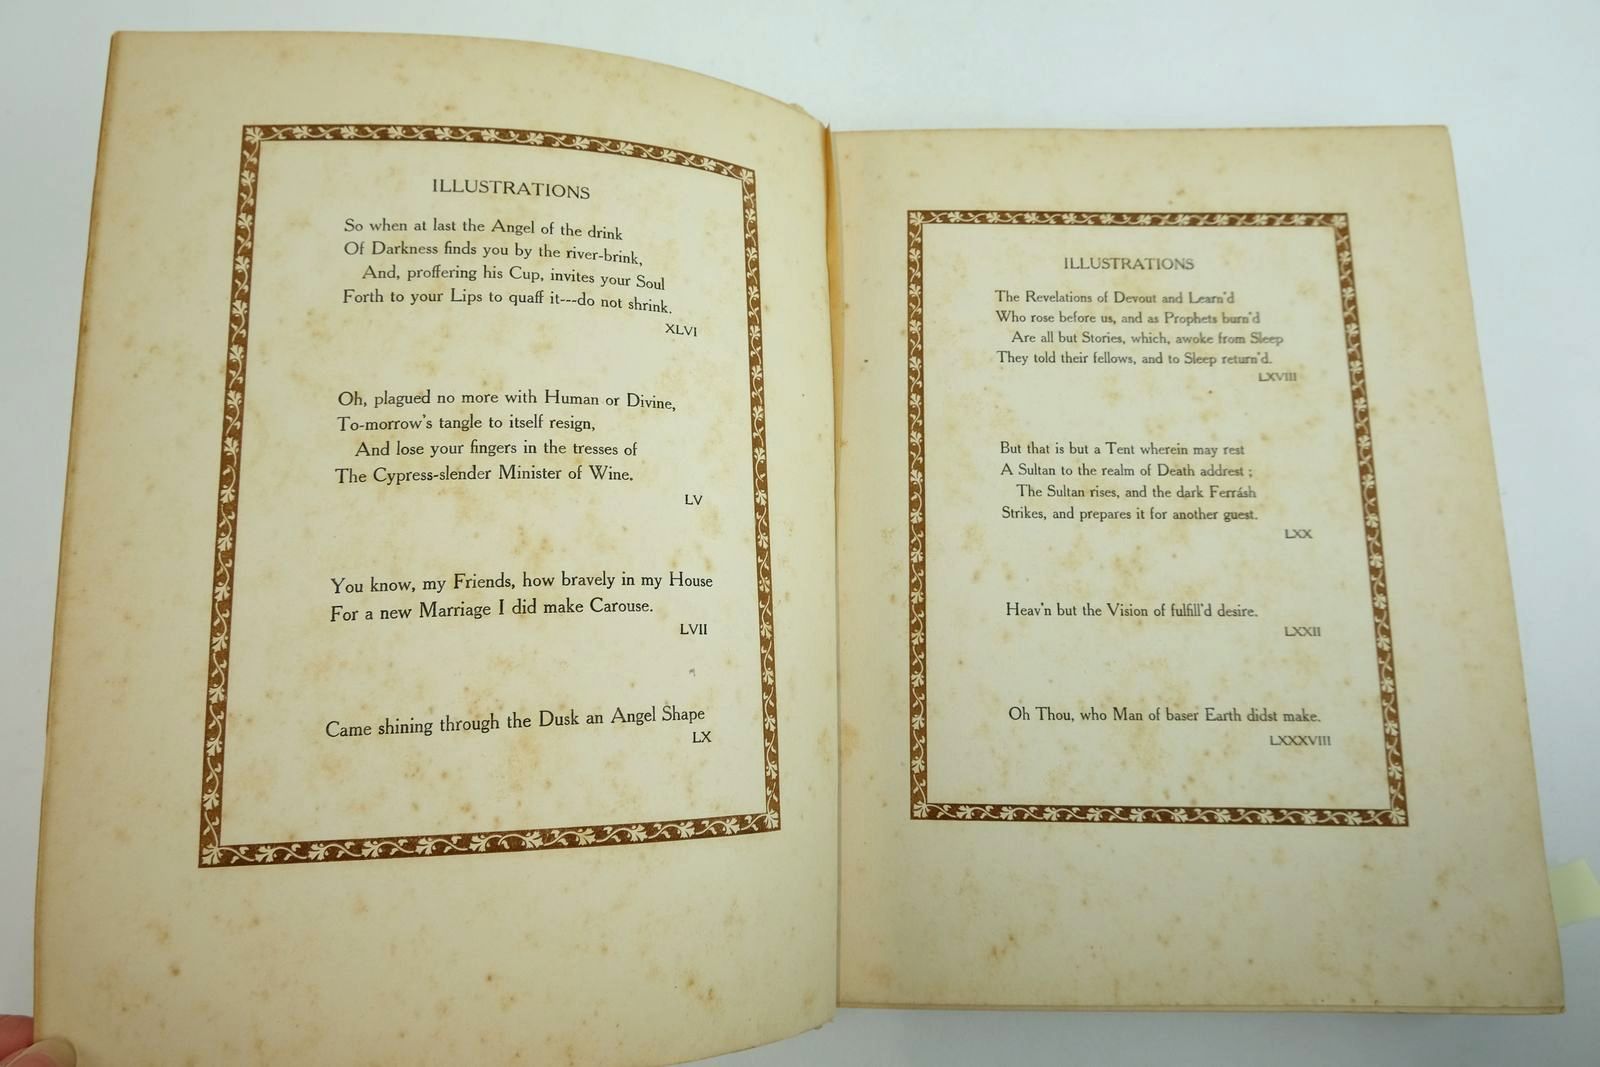 ILLUSTRATIONS
So when at last the Angel of the drink
Of Darkness finds you by the river-brink,
And, proffering his Cup, invites your Soul
Forth to your Lips to quaff it---do not shrink.
XLVI
Oh, plagued no more with Human or Divine,
To-morrow's tangle to itself resign,
And lose your fingers in the tresses of
The Cypress-slender Minister of Wine.
LV
You know, my Friends, how bravely in my House
For a new Marriage I did make Carouse.
LVII
Came shining through the Dusk an Angel Shape
LX
ILLUSTRATIONS
The Revelations of Devout and Learn'd
Who rose before us, and as Prophets burn'd
Are all but Stories, which, awoke from Sleep
They told their fellows, and to Sleep return'd.
LXVIII
But that is but a Tent wherein may rest
A Sultan to the realm of Death addrest ;
The Sultan rises, and the dark Ferrásh
Strikes, and prepares it for another guest.
LXX
Heav'n but the Vision of fulfill'd desire.
LXXII
Oh Thou, who Man of baser Earth didst make.
LXXXVIII